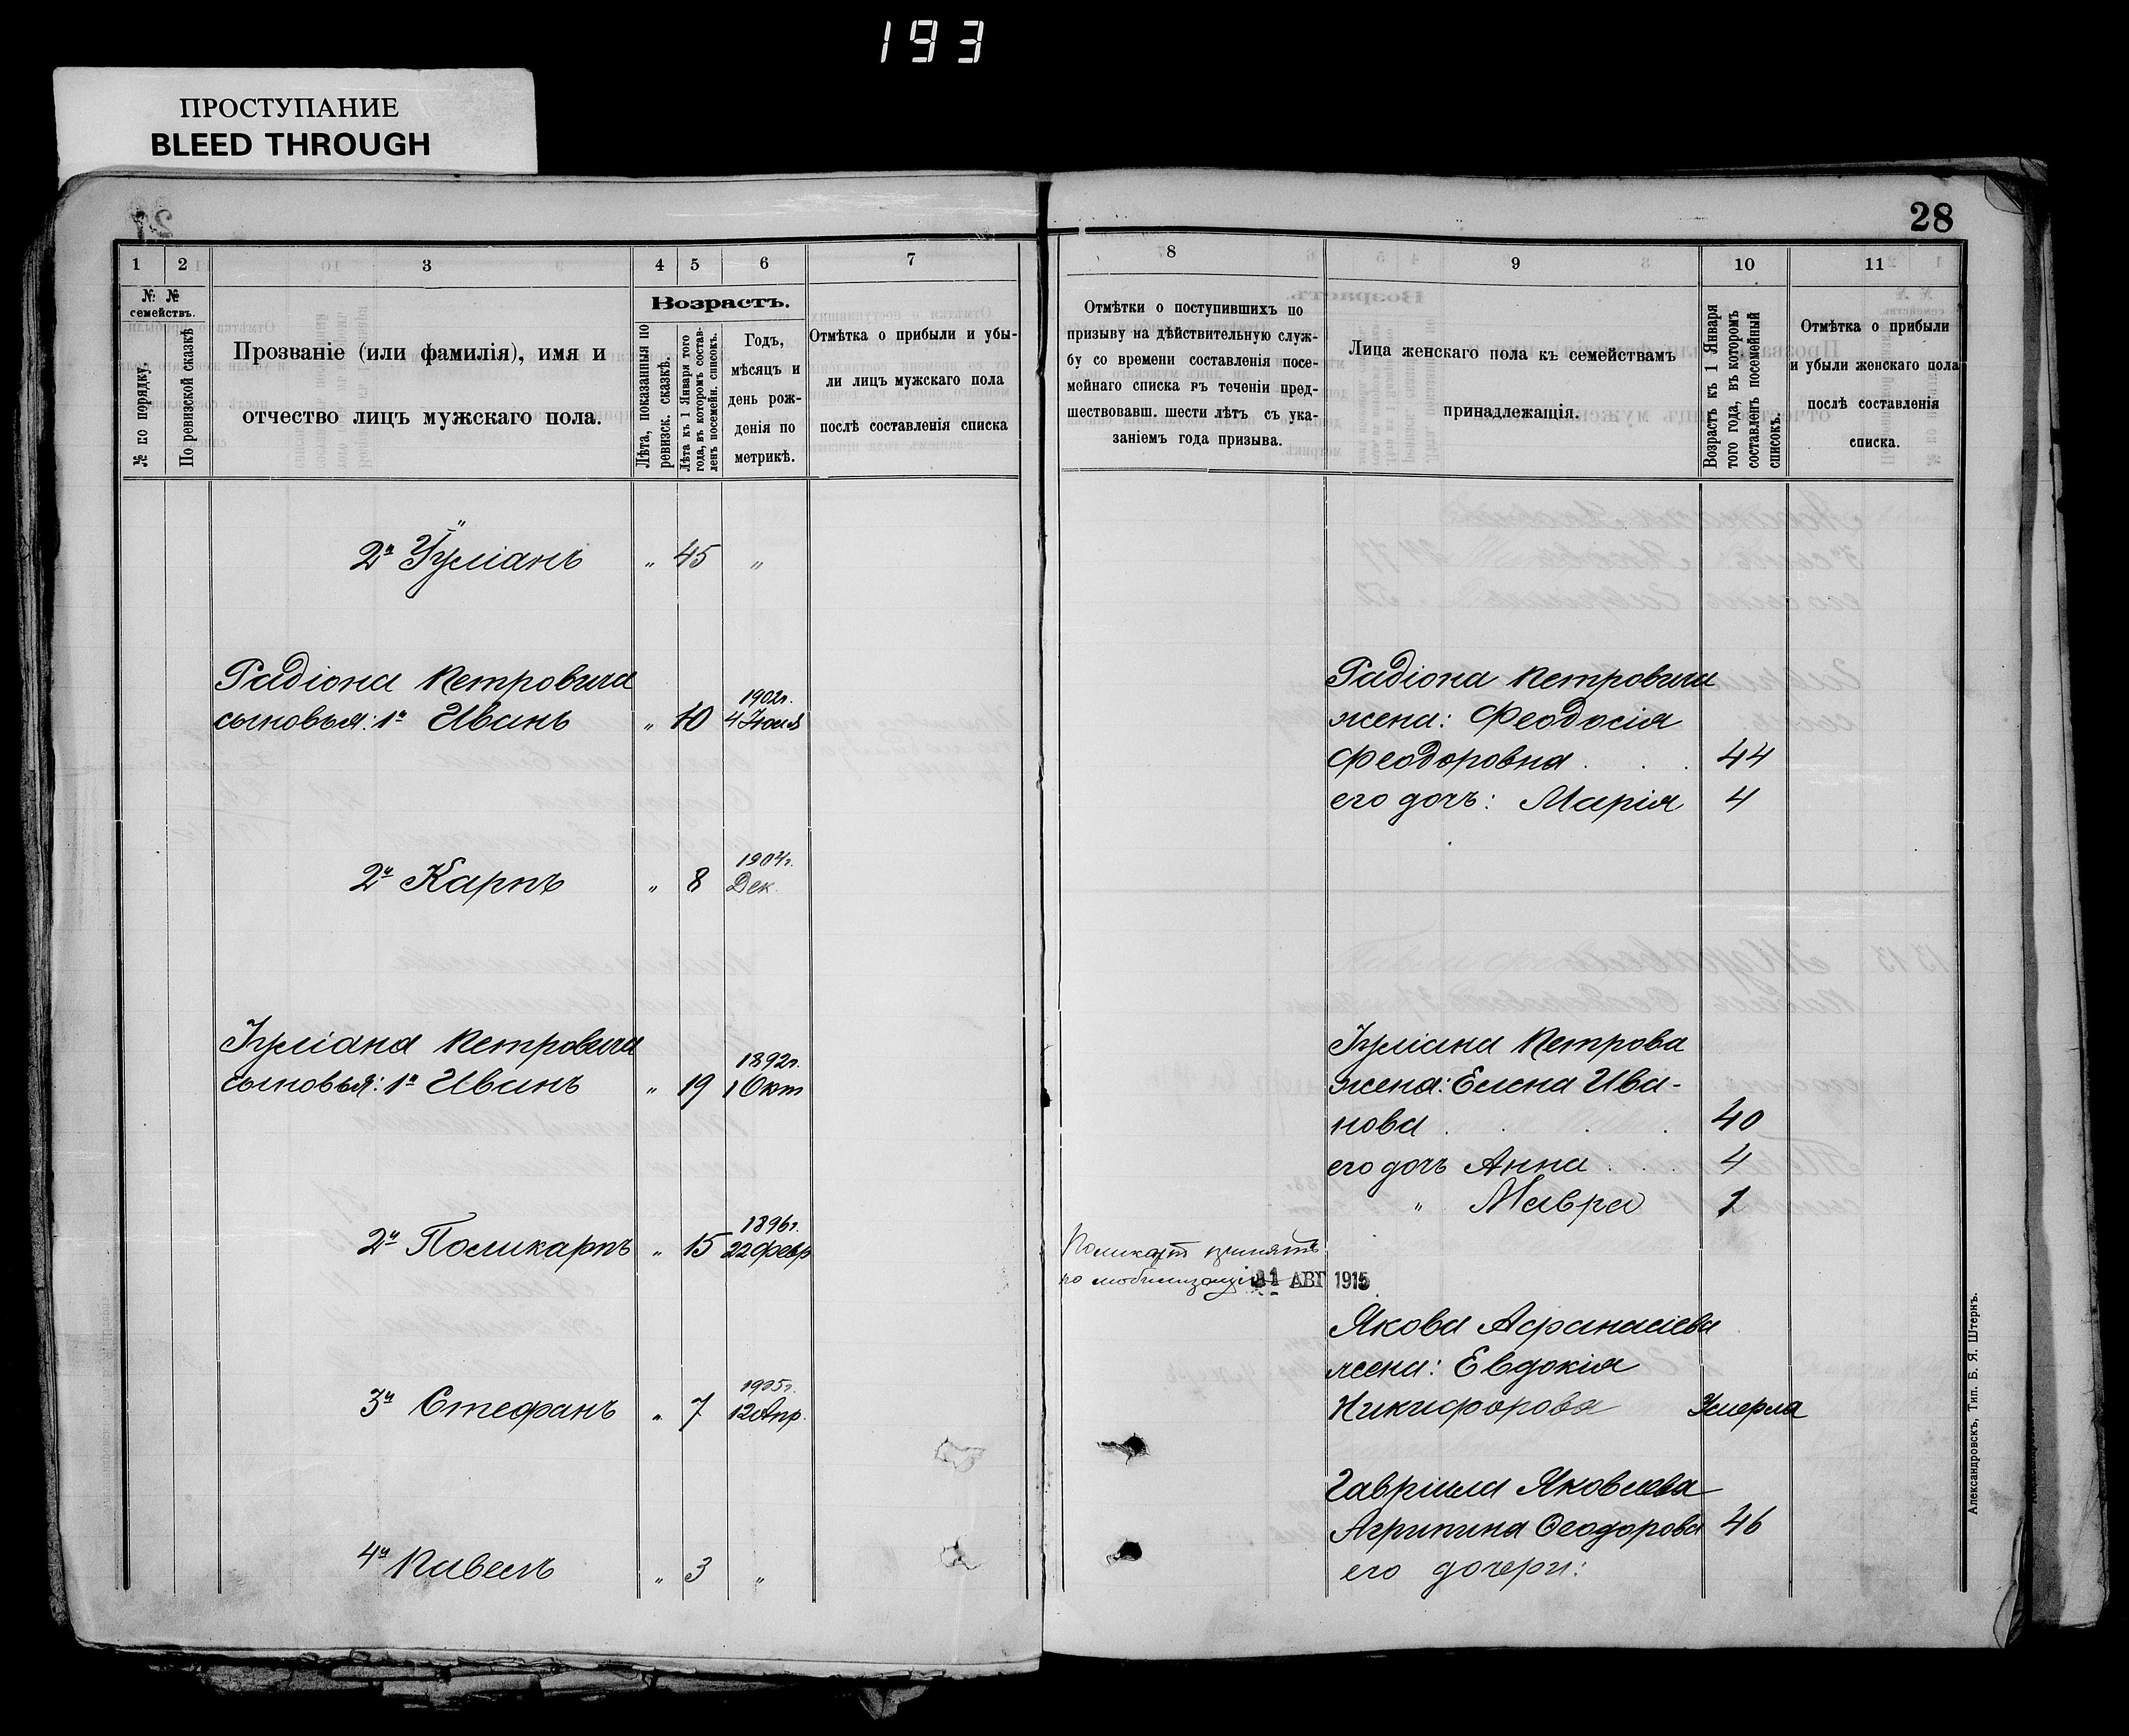 193
ПРОСТУПАНИЕ
BLEED THROUGH
28
1 2 3 4 5 6 7
№ № семействъ.
№ по порядку.
По ревизской сказкѣ
Прозваніе (или фамилія), имя и
отчество лицъ мужскаго пола.
Возрастъ.
Лѣта, показанныя по
ревизск. сказкѣ.
Лѣта къ 1 Января того
года, въ которомъ состав-
ленъ посемейн. списокъ.
Годъ,
мѣсяцъ и
день рож-
денія по
метрикѣ.
Отмѣтка о прибыли и убы-
ли лицъ мужскаго пола
послѣ составленія списка
2й Іуліанъ " 45 "
Радіона Петровича
сыновья: 1й Иванъ " 10 1902г. 4 Іюля
2й Карпъ " 8 1904г. Дек.
Іуліана Петровича
сыновья: 1й Иванъ " 19 1892г. 1 Окт
2й Поликарпъ " 15 1896г. 22 февр
3й Стефанъ " 7 1905г. 12 Апр.
4й Павелъ " 3 "
8 9 10 11
Отмѣтки о поступившихъ по
призыву на дѣйствительную служ-
бу со времени составленія посе-
мейнаго списка въ теченіи пред-
шествовавш. шести лѣтъ съ ука-
заніемъ года призыва.
Лица женскаго пола къ семействамъ
принадлежащія.
Возрастъ къ 1 Января
того года, въ которомъ
составленъ посемейный
списокъ.
Отмѣтка о прибыли
и убыли женскаго пола
послѣ составленія
списка.
Радіона Петровича
жена: Феодосія
Феодоровна . . . 44
его дочь: Марія 4
Іуліана Петрова
жена: Елена Ива-
нова . . . 40
его дочь Анна . . 4
" Мавра 1
Поликарп принятъ
по мобилизаціи АВГ 1915
Якова Афанасіева
жена: Евдокія
Никифорова Умерла
Гавріила Яковлева
Агрипина Феодорова 46
его дочери:
Александровскъ, Тип. Б. Я. Штернъ.